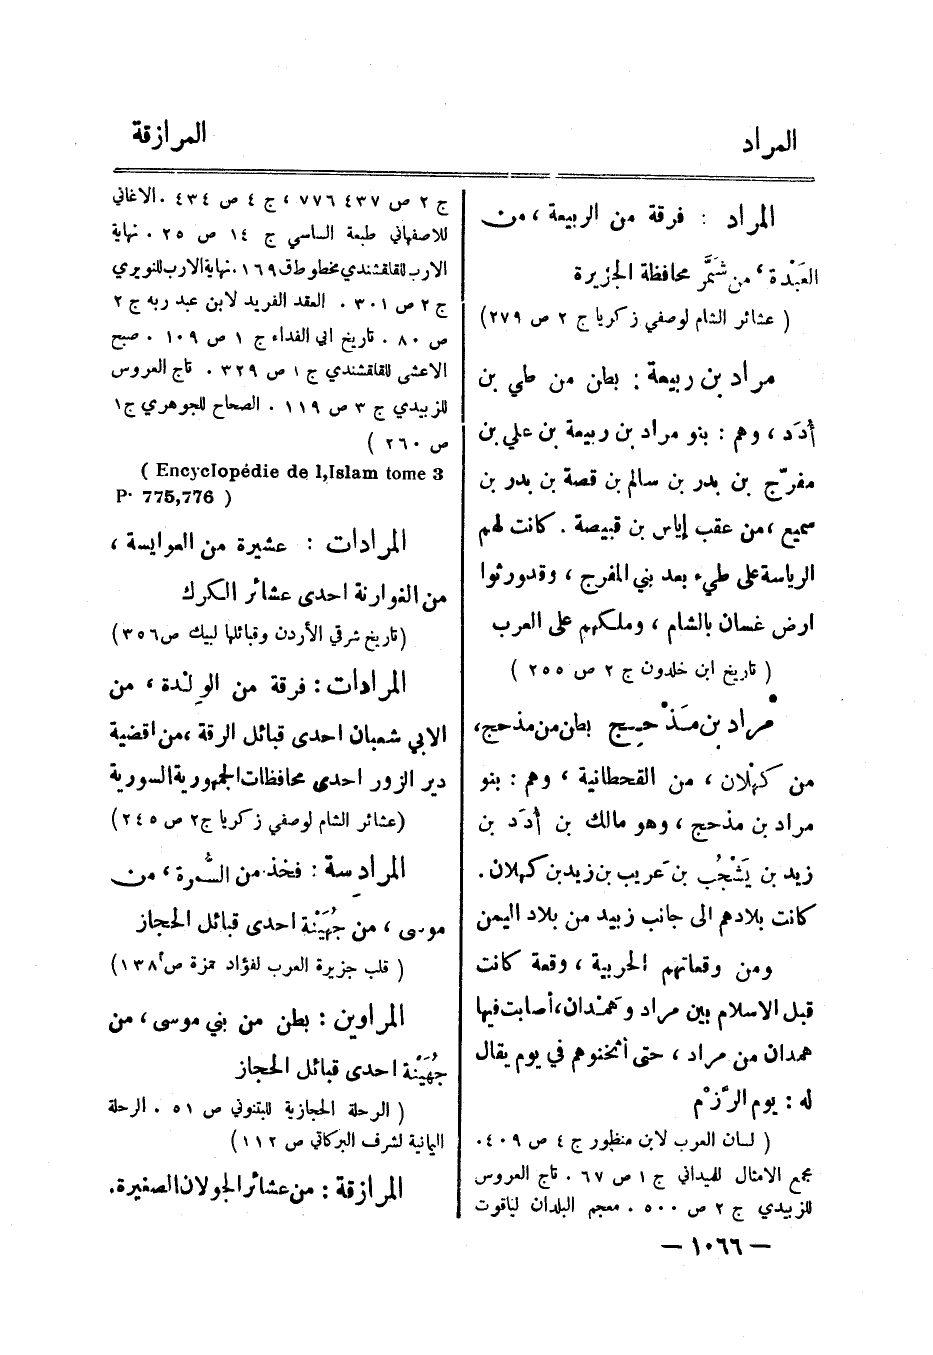 المراد
المرازقة
المراد : فرقة من الربيعة ، من
العَبْدة ، من شَمَّر محافظة الجزيرة
( عشائر الشام لوصفي زكريا ج ٢ ص ٢٧٩)
مراد بن ربيعة : بطن من طي بن
أُدَد ، وهم : بنو مراد بن ربيعة بن علي بن
مفرّج بن بدر بن سالم بن قصة بن بدر بن
سميع ، من عقب إياس بن قبيصة . كانت لهم
الرياسة على طيء بعد بني المفرج ، وقد ورثوا
ارض غسان بالشام ، وملكهم على العرب
( تاريخ ابن خلدون ج ٢ ص ٢٥٥ )
مُراد بن مَذْحِيج بطن من مذحج ،
من كَهْلان ، من القحطانية ، وهم : بنو
مراد بن مذحج ، وهو مالك بن أُدَد بن
زيد بن يَشْجُب بن عَريب بن زيد بن كهلان .
كانت بلادهم الى جانب زبيد من بلاد اليمن
ومن وقعاتهم الحربية ، وقعة كانت
قبل الاسلام بين مراد وهَمْدان ، أصابت فيها
همدان من مراد ، حتى أثخنوهم في يوم يقال
له : يوم الرَّزْم
( لسان العرب لابن منظور ج ٤ ص ٤٠٩ .
مجمع الامثال للميداني ج ١ ص ٦٧ . تاج العروس
للزبيدي ج ٢ ص ٥٠٠ . معجم البلدان لياقوت
ج ٢ ص ٤٣٧ ٧٧٦ ، ج ٤ ص ٤٣٤ . الاغاني
للاصفهاني طبعة الساسي ج ١٤ ص ٢٥ . نهاية
الارب للقلقشندي مخطوط ق ١٦٩ . نهاية الارب للنويري
ج ٢ ص ٣٠١ . العقد الفريد لابن عبد ربه ج ٢
ص ٨٠ . تاريخ ابي الفداء ج ١ ص ١٠٩ . صبح
الاعشى للقلقشندي ج ١ ص ٣٢٩ . تاج العروس
للزبيدي ج ٣ ص ١١٩ . الصحاح للجوهري ج ١
ص ٢٦٠ )
( Encyclopédie de l,Islam tome 3
P. 775,776 )
المرادات : عشيرة من العوايسة ،
من الغوارنة احدى عشائر الكرك
(تاريخ شرقي الأردن وقبائلها لبيك ص ٣٥٦)
المرادات : فرقة من الوِلْدة ، من
الابي شعبان احدى قبائل الرقة ، من اقضية
دير الزور احدى محافظات الجمهورية السورية
(عشائر الشام لوصفي زكريا ج ٢ ص ٢٤٥)
المرادِسة : فخذ من السُّمرة ، من
موسى ، من جُهَيْنة احدى قبائل الحجاز
( قلب جزيرة العرب لفؤاد حمزة ص ١٣٨)
المراوين : بطن من بني موسى ، من
جُهَيْنة احدى قبائل الحجاز
( الرحلة الحجازية للبتنوني ص ٥١ . الرحلة
اليمانية لشرف البركاتي ص ١١٢)
المرازقة : من عشائر الجولان الصغيرة .
— ١٠٦٦ —